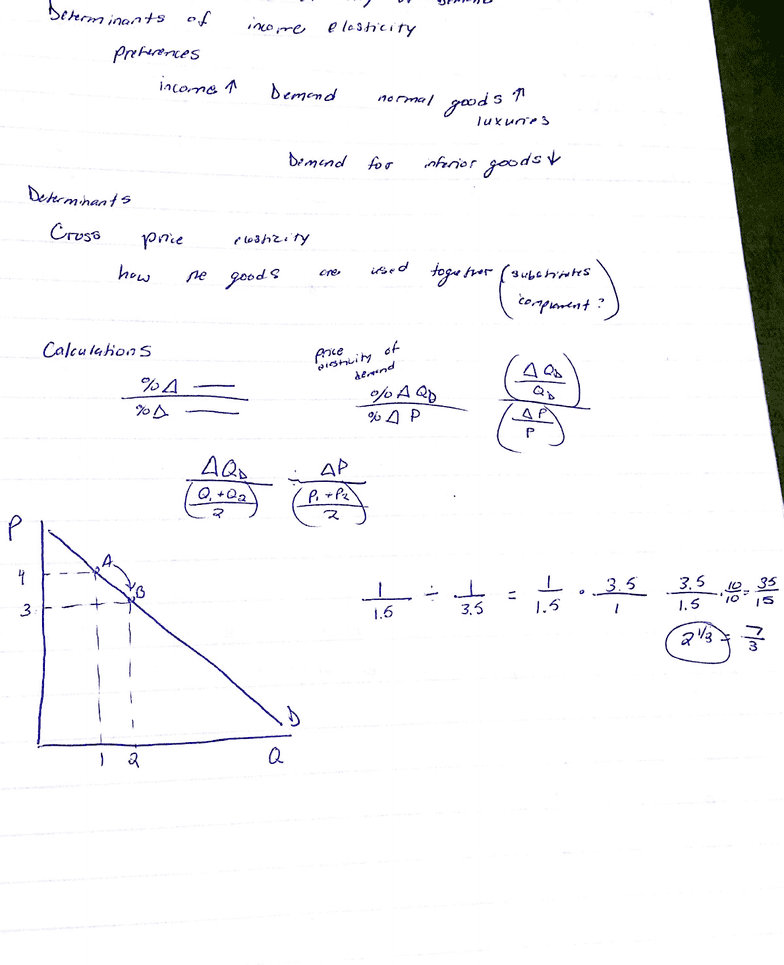 Determinants of income elasticity
preferences
income ↑ Demand normal goods ↑
luxuries
Demand for inferior goods ↓
Determinants
Cross price elasticity
how the goods are used together (substitutes
complement?)
Calculations
%Δ —
%Δ —
price elasticity of demand
%Δ QD
%Δ P
(ΔQD / QD)
(ΔP / P)
ΔQD / ((Q1+Q2)/2) ÷ ΔP / ((P1+P2)/2)
P
4
3
A
B
D
1 2 Q
1/1.5 ÷ 1/3.5 = 1/1.5 · 3.5/1 3.5/1.5 · 10/10 = 35/15
2 1/3 = 7/3